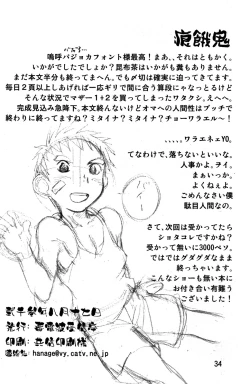 嗚呼パジョカフォント様最高！まあ、それはともかく。
いかがでしたでしょか？昆布茶はいかがも糞もありません。
まだ本文半分も終ってまへん。でも〆切は確実に迫ってきてます。
毎日２頁以上しあげれば一応ギリで間に合う算段になっとるけど
そんな状況でマザー１+２を買ってしまったワタクシ。えへへ。
完成見込み急降下。本文終んないけどオマへの人間性はブッチで
終わりに終ってますね！ミタイナ？ミタイナ？チョーワラエル～！
ワラエネェYO。
てなわけで、落ちないといいな。
人事かよ。ヲイ。
まぁいっか。
よくねぇよ。
ごめんなさい僕
駄目人間なの。
さて、次回は受かってたら
ショタコレですかね？
受かって無いに3000ペソ。
ではではグダグダなまま
終っちゃいます。
こんなショーも無い本に
お付き合い有難う
ございました！
hanage@vy.catv.ne.jp
34